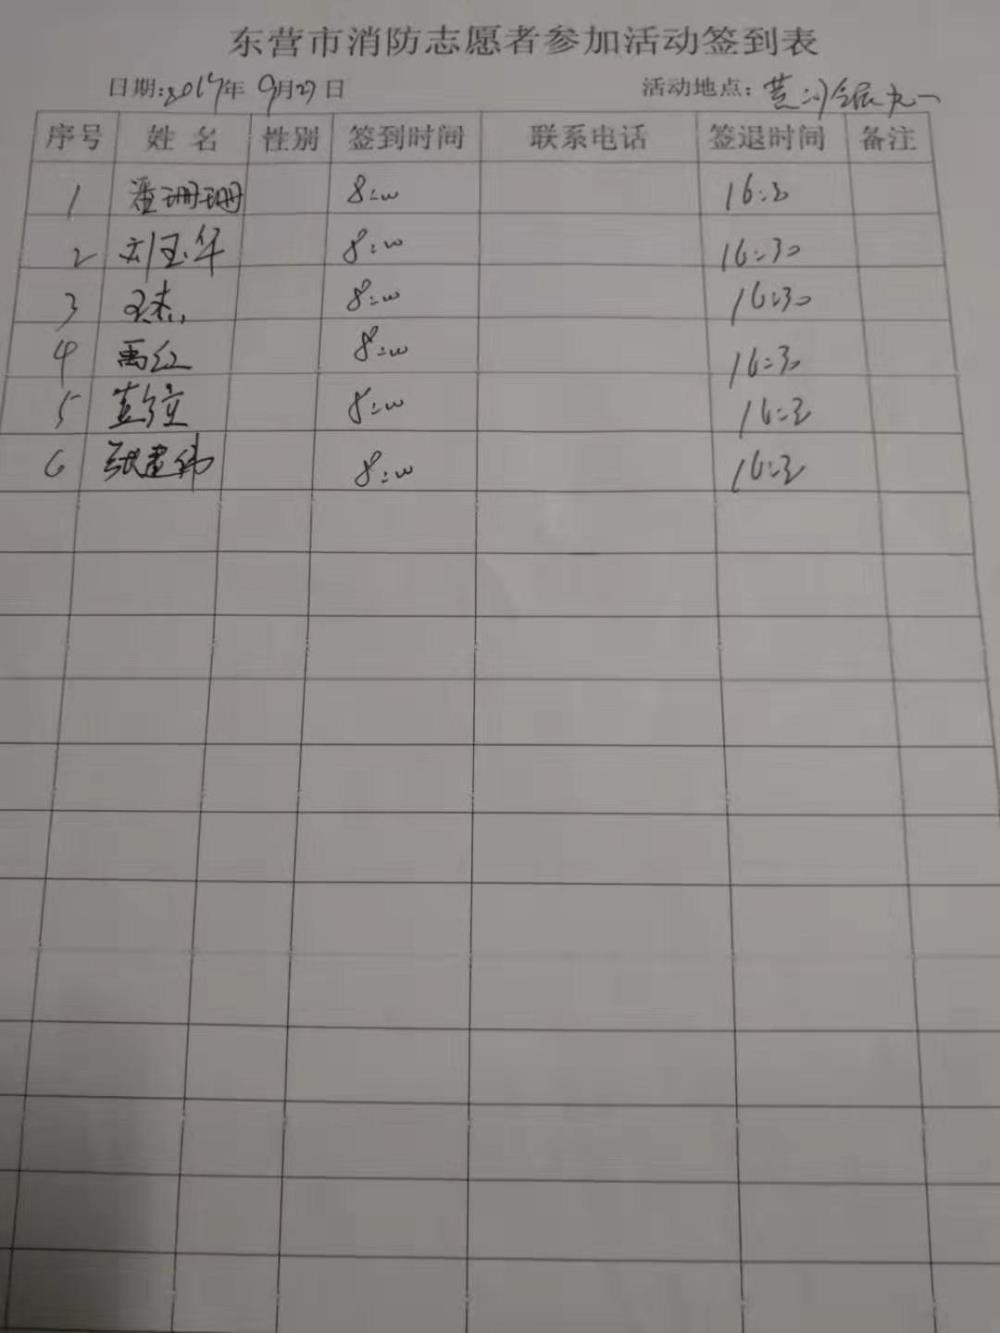 东营市消防志愿者参加活动签到表
日期:2019年9月27日 活动地点:黄河
序号 姓名 性别 签到时间 联系电话 签退时间 备注
1 珊珊 8:00 16:30
2 刘玉华 8:00 16:30
3 王杰 8:00 16:30
4 禹红 8:00 16:30
5 8:00 16:30
6 张建伟 8:00 16:30